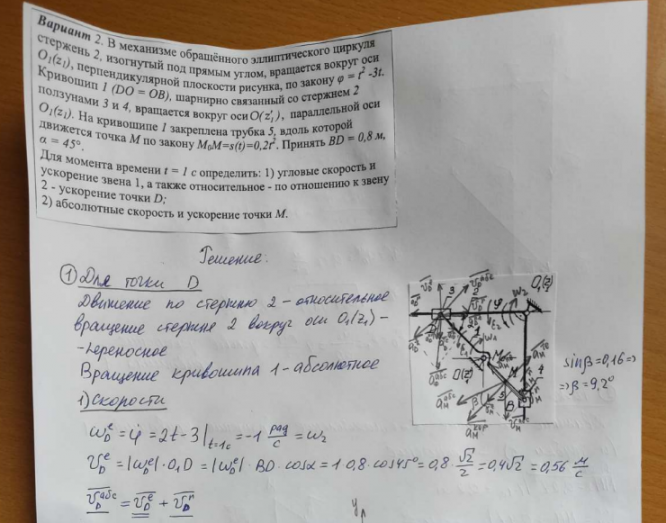 Вариант 2. В механизме обращённого эллиптического циркуля
стержень 2, изогнутый под прямым углом, вращается вокруг оси
O₁(z₁), перпендикулярной плоскости рисунка, по закону φ = t² -3t.
Кривошип 1 (DO = OB), шарнирно связанный со стержнем 2
ползунами 3 и 4, вращается вокруг оси O(z₁'), параллельной оси
O₁(z₁). На кривошипе 1 закреплена трубка 5, вдоль которой
движется точка M по закону M₀M=s(t)=0,2t². Принять BD = 0,8 м,
α = 45°.
Для момента времени t = 1 с определить: 1) угловые скорость и
ускорение звена 1, а также относительное - по отношению к звену
2 - ускорение точки D;
2) абсолютные скорость и ускорение точки M.
Решение.
① Для точки D
Движение по стержню 2 - относительное
вращение стержня 2 вокруг оси O₁(z₁) -
- переносное
Вращение кривошипа 1 - абсолютное
sinβ=0,16 ⇒
⇒ β = 9,2°
1) Скорости
ω_D^e = φ̇ = 2t - 3|_{t=1c} = -1 рад/с = ω₂
V_D^e = |ω_D^e|·O₁D = |ω_D^e|·BD·cosα = 1·0,8·cos45° = 0,8·√2/2 = 0,4√2 = 0,56 м/с
V_D^абс = V_D^e + V_D^r